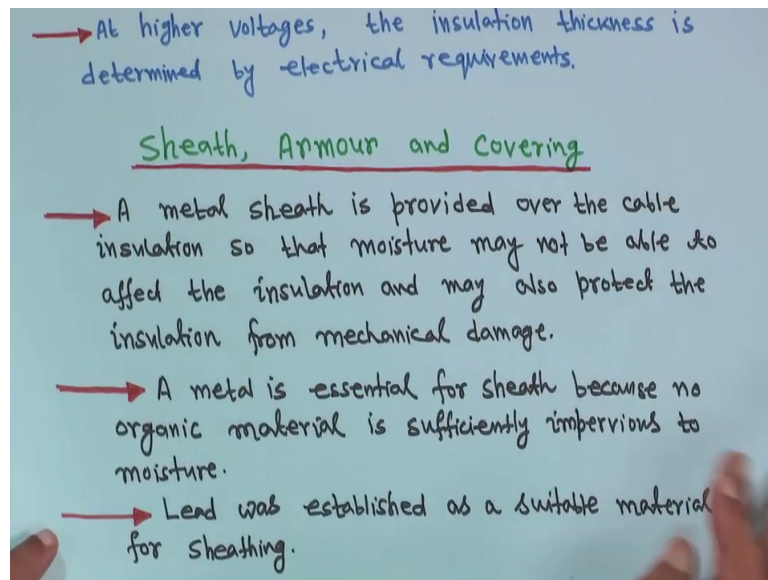 At higher voltages, the insulation thickness is
determined by electrical requirements.
Sheath, Armour and Covering
A metal sheath is provided over the cable
insulation so that moisture may not be able to
affect the insulation and may also protect the
insulation from mechanical damage.
A metal is essential for sheath because no
organic material is sufficiently impervious to
moisture.
Lead was established as a suitable material
for sheathing.